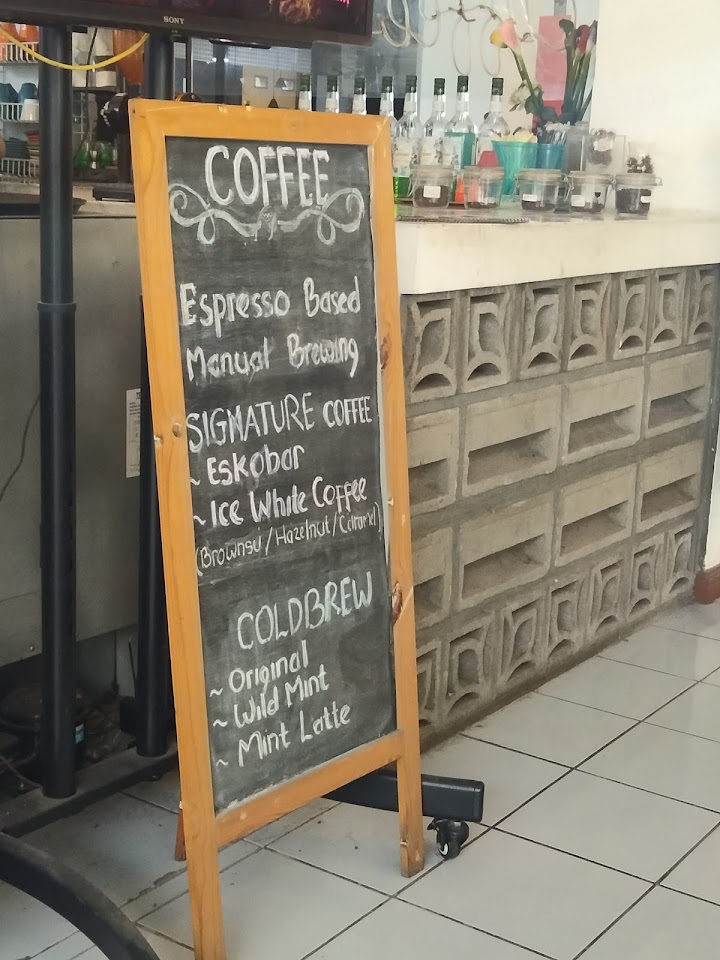 SONY
COFFEE
Espresso Based
Manual Brewing
SIGNATURE COFFEE
~ Eskobar
~ Ice White Coffee
(Brownsu/Hazelnut/Caramel)
COLDBREW
~ Original
~ Wild Mint
~ Mint Latte